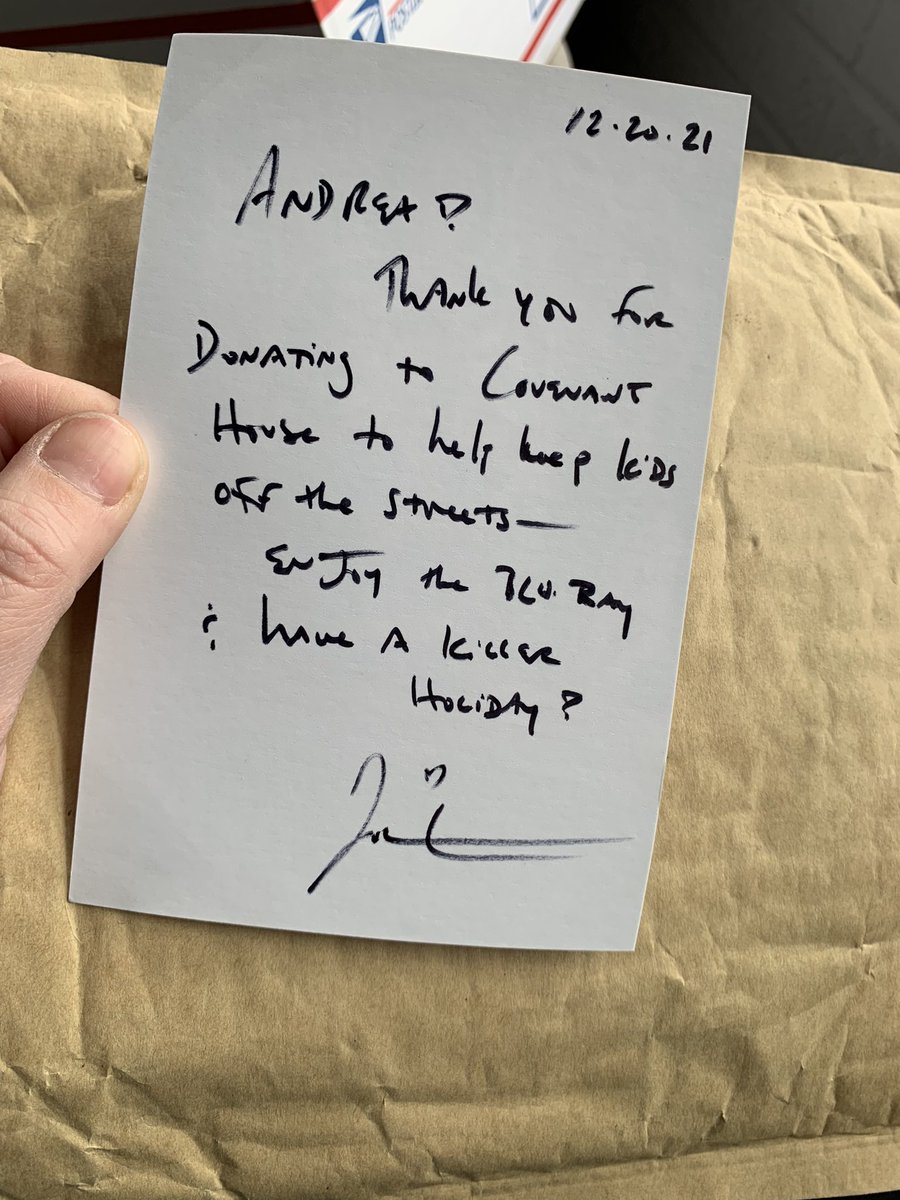 POSTAL
12.20.21
ANDREA!
THANK YOU FOR
DONATING to COVENANT
HOUSE to help keep KiDS
OFF the STREETS—
ENJOY the BLU.RAY
& HAVE A KILLER
HOLIDAY!